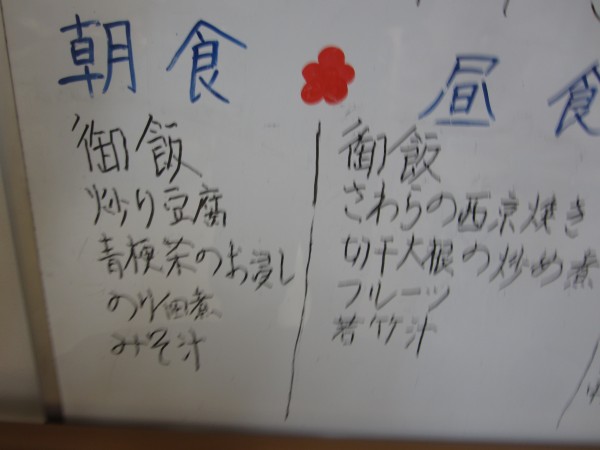 朝食
御飯
炒り豆腐
青梗菜のお浸し
のり佃煮
みそ汁
昼食
御飯
さわらの西京焼き
切干大根の炒め煮
フルーツ
若竹汁